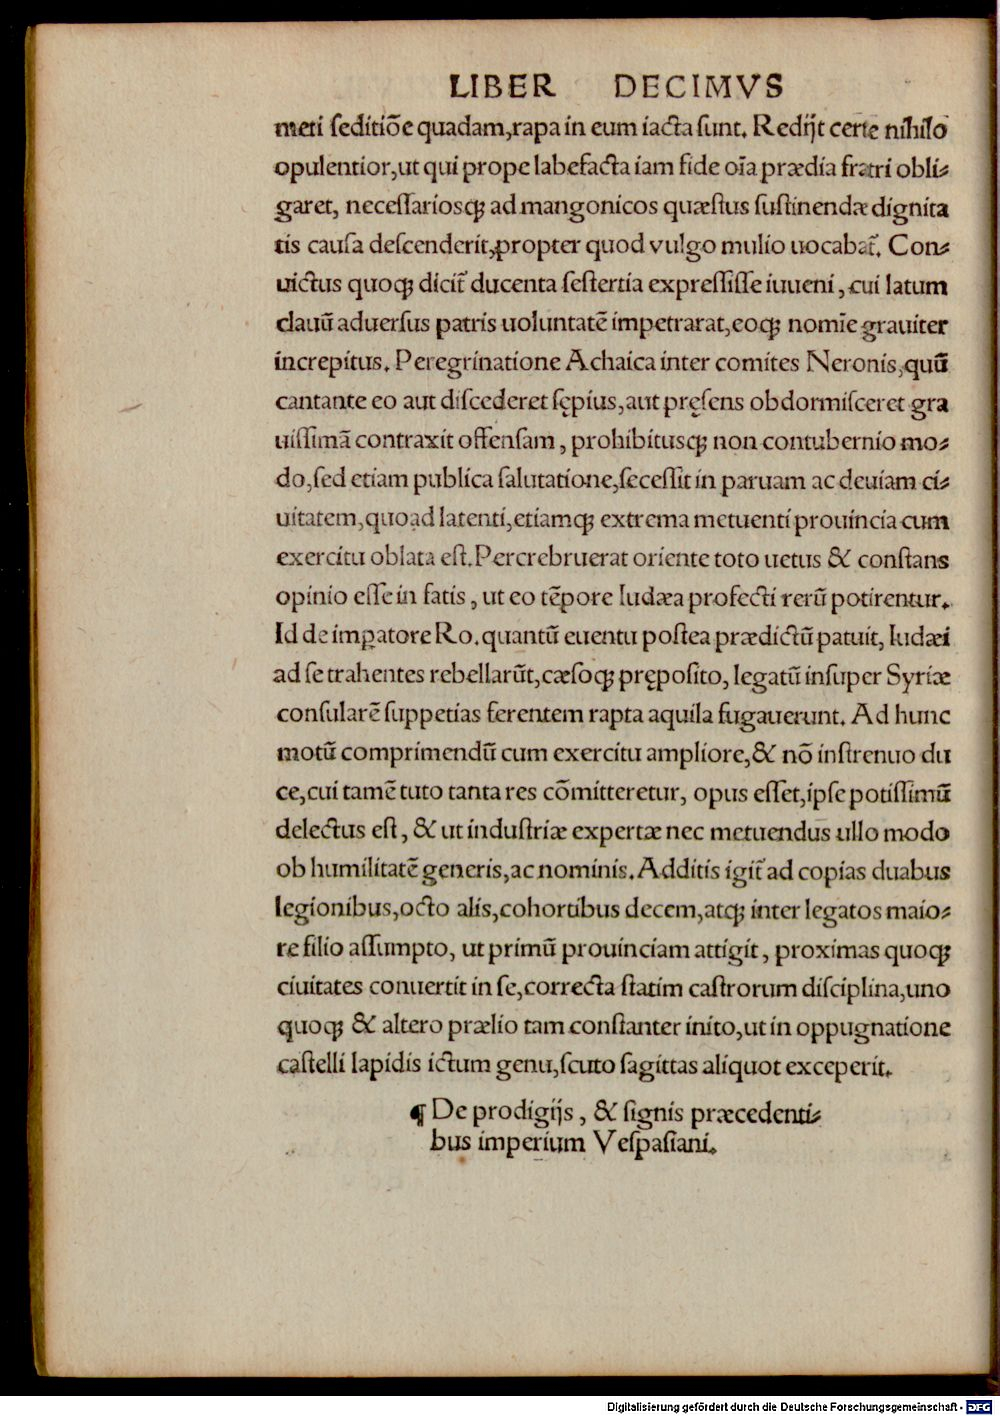 LIBER DECIMVS
meti ſeditiōe quadam,rapa in eum iacta ſunt. Redijt certe nihilo
opulentior,ut qui prope labefacta iam fide oīa prædia fratri obli⸗
garet, neceſſariosqꝫ ad mangonicos quæſtus ſuſtinendæ dignita
tis cauſa deſcenderit,propter quod vulgo mulio uocabat̃. Con⸗
uictus quoqꝫ dicit̃ ducenta ſeſtertia expreſſiſſe iuueni, cui latum
clauū aduerſus patris uoluntatē impetrarat,eoqꝫ nomīe grauiter
increpitus. Peregrinatione Achaica inter comites Neronis,quū
cantante eo aut diſcederet ſępius,aut pręſens obdormiſceret gra
uiſſimā contraxit offenſam, prohibitusqꝫ non contubernio mo⸗
do,ſed etiam publica ſalutatione,ſeceſſit in paruam ac deuiam ci⸗
uitatem,quoad latenti,etiamqꝫ extrema metuenti prouincia cum
exercitu oblata eſt.Percrebruerat oriente toto uetus & conſtans
opinio eſſe in fatis, ut eo tēpore Iudæa profecti rerū potirentur.
Id de imꝑatore Ro. quantū euentu poſtea prædictū patuit, Iudæi
ad ſe trahentes rebellarūt,cæſoqꝫ prępoſito, legatū inſuper Syriæ
conſularē ſuppetias ferentem rapta aquila fugauerunt. Ad hunc
motū comprimendū cum exercitu ampliore,& nō inſtrenuo du
ce,cui tamē tuto tanta res cōmitteretur, opus eſſet,ipſe potiſſimū
delectus eſt, & ut induſtriæ expertæ nec metuendus ullo modo
ob humilitatē generis,ac nominis.Additis igit̃ ad copias duabus
legionibus,octo alis,cohortibus decem,atqꝫ inter legatos maio⸗
re filio aſſumpto, ut primū prouinciam attigit, proximas quoqꝫ
ciuitates conuertit in ſe,correcta ſtatim caſtrorum diſciplina,uno
quoqꝫ & altero prælio tam conſtanter inito,ut in oppugnatione
caſtelli lapidis ictum genu,ſcuto ſagittas aliquot exceperit.
¶ De prodigijs, & ſignis præcedenti⸗
bus imperium Veſpaſiani.
Digitalisierung gefördert durch die Deutsche Forschungsgemeinschaft - DFG